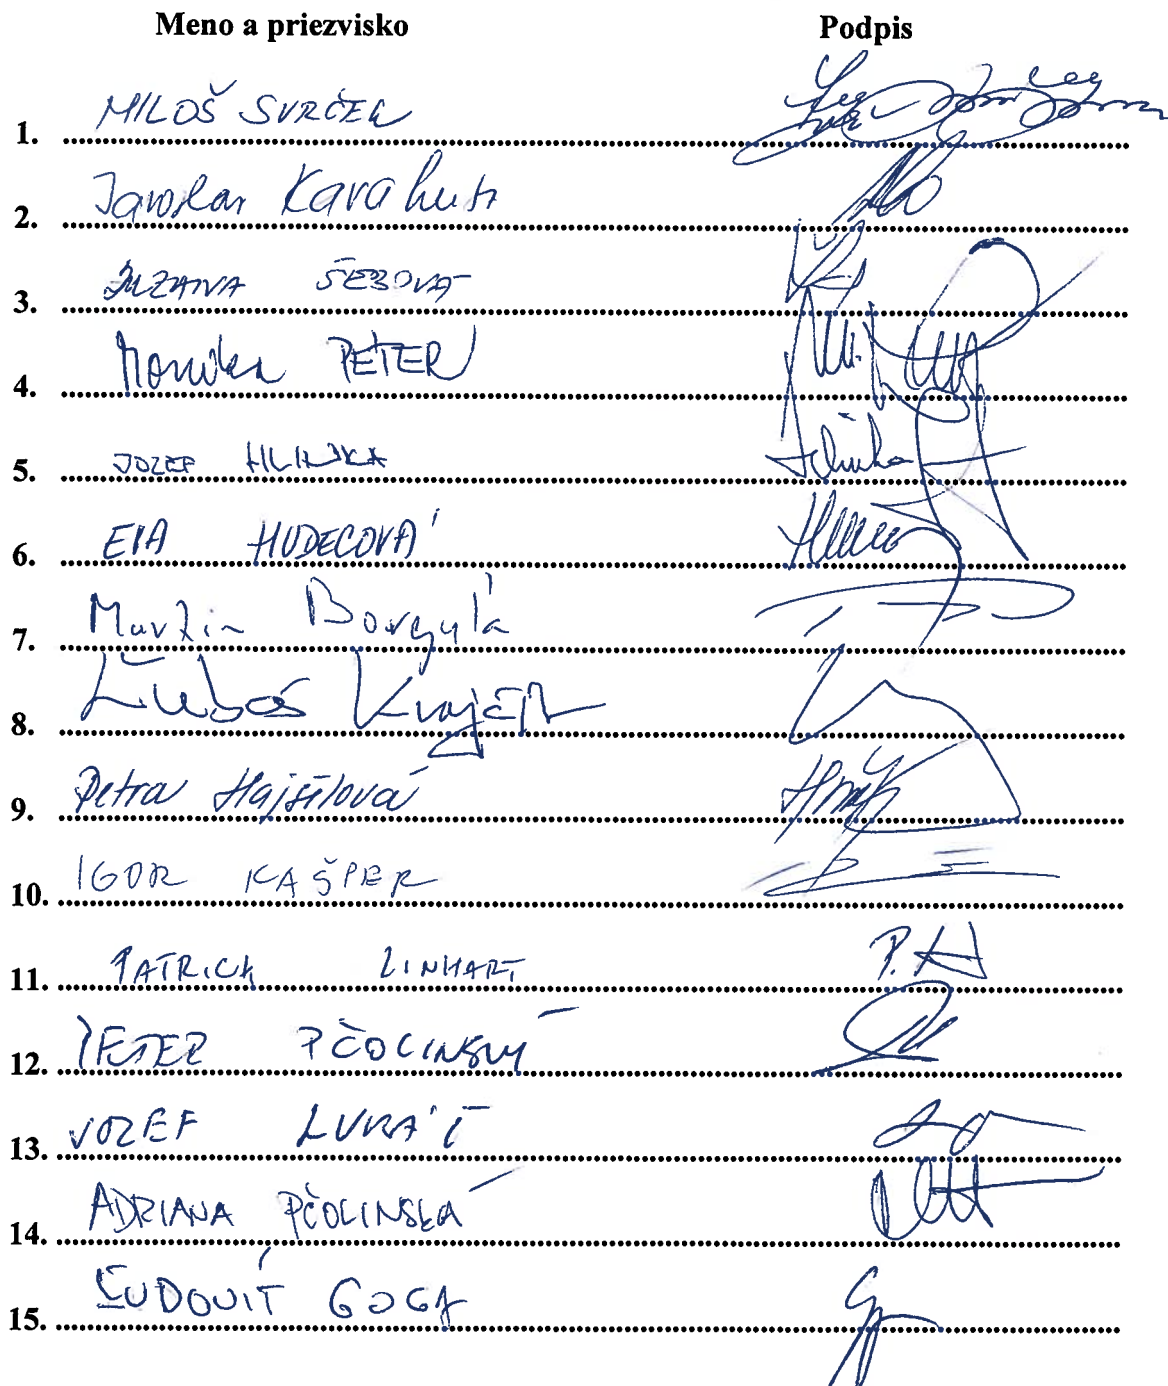 Meno a priezvisko Podpis
1. MILOŠ SVRČEK
2. Jaroslav Karahuta
3. ZUZANA ŠEBOVÁ
4. Monika PETER
5. JOZEF HLINKA Hlinka
6. EVA HUDECOVÁ
7. Martin Borguľa
8. Ľuboš Krajčír
9. Petra Hajšelová
10. IGOR KAŠPER
11. PATRICK LINHART P.
12. PETER PČOLINSKÝ
13. JOZEF LUKÁČ
14. ADRIANA PČOLINSKÁ
15. ĽUDOVÍT GOGA